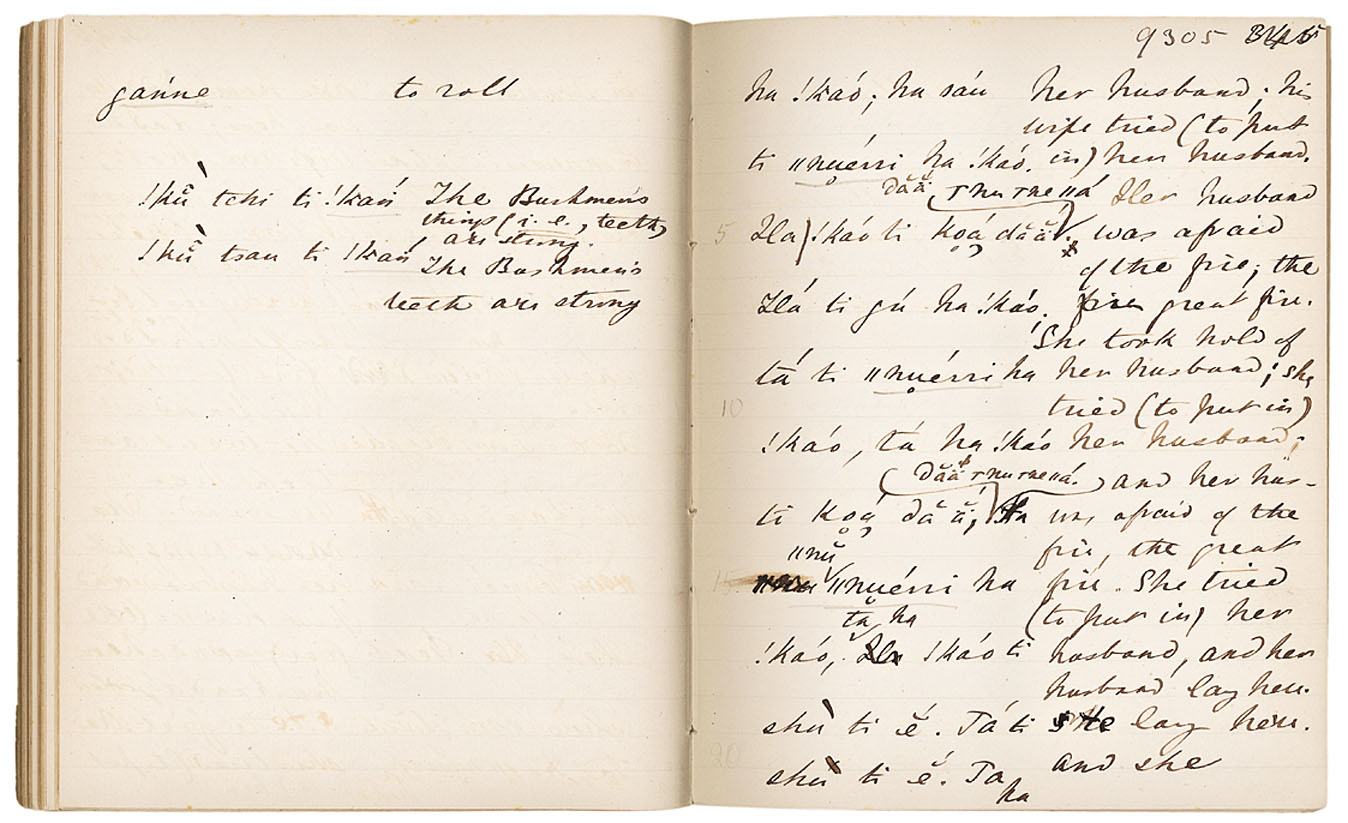 ganne to roll
!kŭ̀ tchi ti !kań The Bushmen's
things (i.e., teeth)
are strong.
!kŭ̀ tsau ti !kań The Bushmen's
teeth are strong
9305
ha !káó; ha sáu her husband; his
wife tried (to put
ti ǁnuérri ha !káó. in) her husband.
dăă Her husband
5 Ha !káo ti koá dăă. was afraid
of the fire; the
Há ti gú ha !káó. great fire.
She took hold of
tá ti ǁnuérri ha her husband; she
10 tried (to put in)
!káo, tá ha !káo her husband;
dăă and her hus-
ti koá dăă, was afraid of the
ǁnŭ fire, the great
15 ǁnuérri ha fire. She tried
tă ha (to put in) her
!káo, !káo ti husband, and her
husband lay here.
shù ti ĕ́. Tá ti she lay here.
20 and she
shù ti ĕ́. Ta
ha